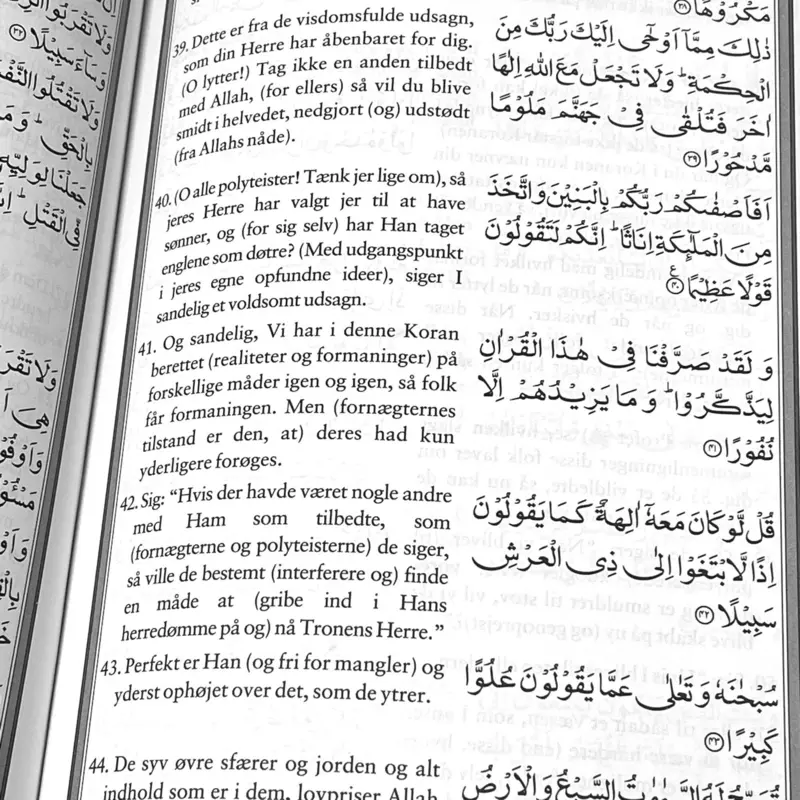 39. Dette er fra de visdomsfulde udsagn,
som din Herre har åbenbaret for dig.
(O lytter!) Tag ikke en anden tilbedt
med Allah, (for ellers) så vil du blive
smidt i helvedet, nedgjort (og) udstødt
(fra Allahs nåde).
40. (O alle polyteister! Tænk jer lige om), så
jeres Herre har valgt jer til at have
sønner, og (for sig selv) har Han taget
englene som døtre? (Med udgangspunkt
i jeres egne opfundne ideer), siger I
sandelig et voldsomt udsagn.
41. Og sandelig, Vi har i denne Koran
berettet (realiteter og formaninger) på
forskellige måder igen og igen, så folk
får formaningen. Men (fornægternes
tilstand er den, at) deres had kun
yderligere forøges.
42. Sig: “Hvis der havde været nogle andre
med Ham som tilbedte, som
(fornægterne og polyteisterne) de siger,
så ville de bestemt (interferere og) finde
en måde at (gribe ind i Hans
herredømme på og) nå Tronens Herre.”
43. Perfekt er Han (og fri for mangler) og
yderst ophøjet over det, som de ytrer.
44. De syv øvre sfærer og jorden og alt
indhold som er i dem, lovpriser Allah
مَكْرُوْهًا ﴿٣٨﴾
ذٰلِكَ مِمَّاۤ اَوْحٰۤى اِلَيْكَ رَبُّكَ مِنَ
الْحِكْمَةِ ؕ وَلَا تَجْعَلْ مَعَ اللّٰهِ اِلٰهًا
اٰخَرَ فَتُلْقٰى فِيْ جَهَنَّمَ مَلُوْمًا
مَّدْحُوْرًا ﴿٣٩﴾
اَفَاَصْفٰىكُمْ رَبُّكُمْ بِالْبَنِيْنَ وَاتَّخَذَ
مِنَ الْمَلٰٓئِكَةِ اِنَاثًا ؕ اِنَّكُمْ لَتَقُوْلُوْنَ
قَوْلًا عَظِيْمًا ﴿٤٠﴾
وَ لَقَدْ صَرَّفْنَا فِيْ هٰذَا الْقُرْاٰنِ
لِيَذَّكَّرُوْا ؕ وَ مَا يَزِيْدُهُمْ اِلَّا
نُفُوْرًا ﴿٤١﴾
قُلْ لَّوْ كَانَ مَعَهٗۤ اٰلِهَةٌ كَمَا يَقُوْلُوْنَ
اِذًا لَّابْتَغَوْا اِلٰى ذِي الْعَرْشِ
سَبِيْلًا ﴿٤٢﴾
سُبْحٰنَهٗ وَ تَعٰلٰى عَمَّا يَقُوْلُوْنَ عُلُوًّا
كَبِيْرًا ﴿٤٣﴾
السَّبْعُ وَ الْاَرْضُ